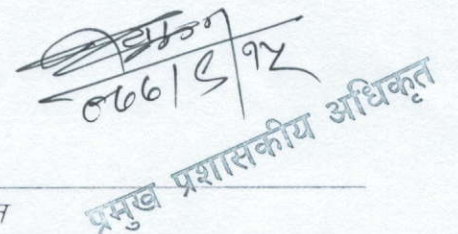 ०७७।९।१५
प्रमुख प्रशासकीय अधिकृत